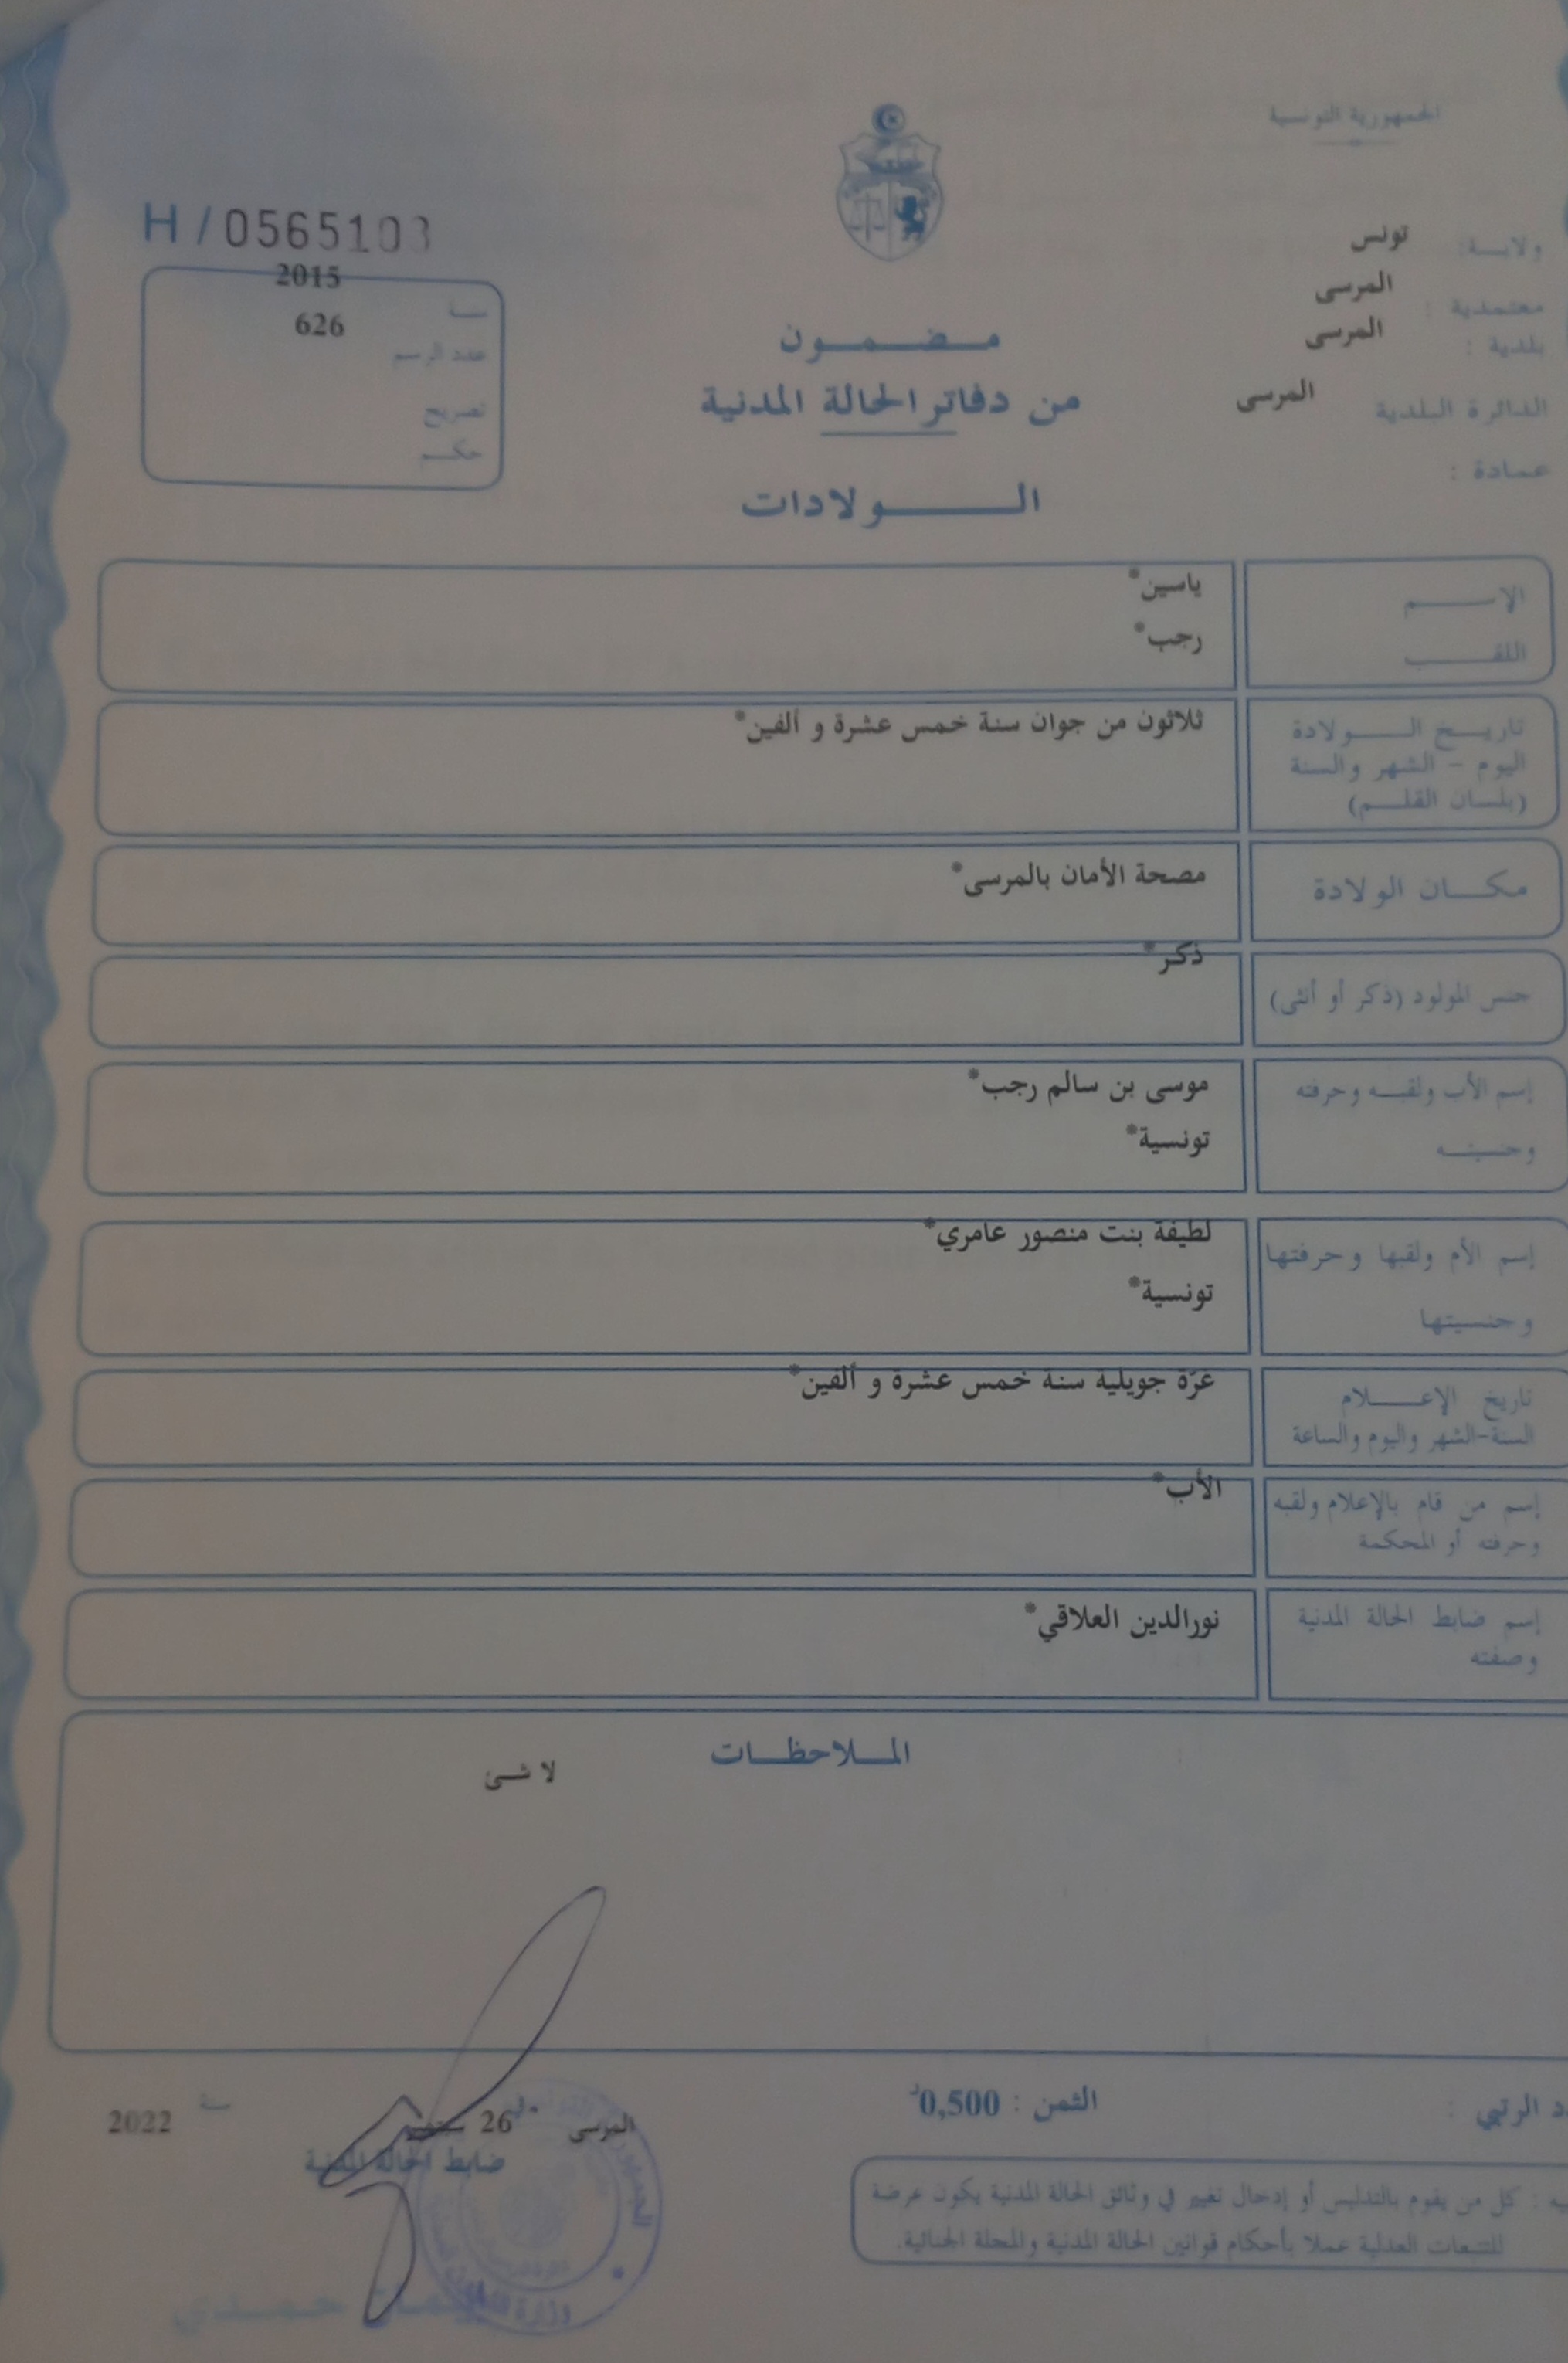 الجمهورية التونسية
ولايـــة: تونس
معتمدية : المرسى
بلدية : المرسى
الدائرة البلدية المرسى
عمادة :
H / 0565103
2015
سنة
626
عدد الرسم
تصريح
حكم
مضمون
من دفاتر الحالة المدنية
الولادات
الإسم ياسين*
اللقب رجب*
تاريخ الولادة ثلاثون من جوان سنة خمس عشرة و ألفين*
اليوم - الشهر والسنة
(بلسان القلم)
مكان الولادة مصحة الأمان بالمرسى*
جنس المولود (ذكر أو أنثى) ذكر*
إسم الأب ولقبه وحرفته موسى بن سالم رجب*
وجنسيته تونسية*
إسم الأم ولقبها وحرفتها لطيفة بنت منصور عامري*
وجنسيتها تونسية*
تاريخ الإعلام غرّة جويلية سنة خمس عشرة و ألفين*
السنة-الشهر واليوم والساعة
إسم من قام بالإعلام ولقبه الأب*
وحرفته أو المحكمة
إسم ضابط الحالة المدنية نورالدين العلاقي*
وصفته
الملاحظات
لا شئ
الرتبي :
الثمن : 0,500د
المرسى في 26 سنة 2022
ضابط الحالة المدنية
: كل من يقوم بالتدليس أو إدخال تغيير في وثائق الحالة المدنية يكون عرضة
للتتبعات العدلية عملا بأحكام قوانين الحالة المدنية والمجلة الجنائية.
حمدي